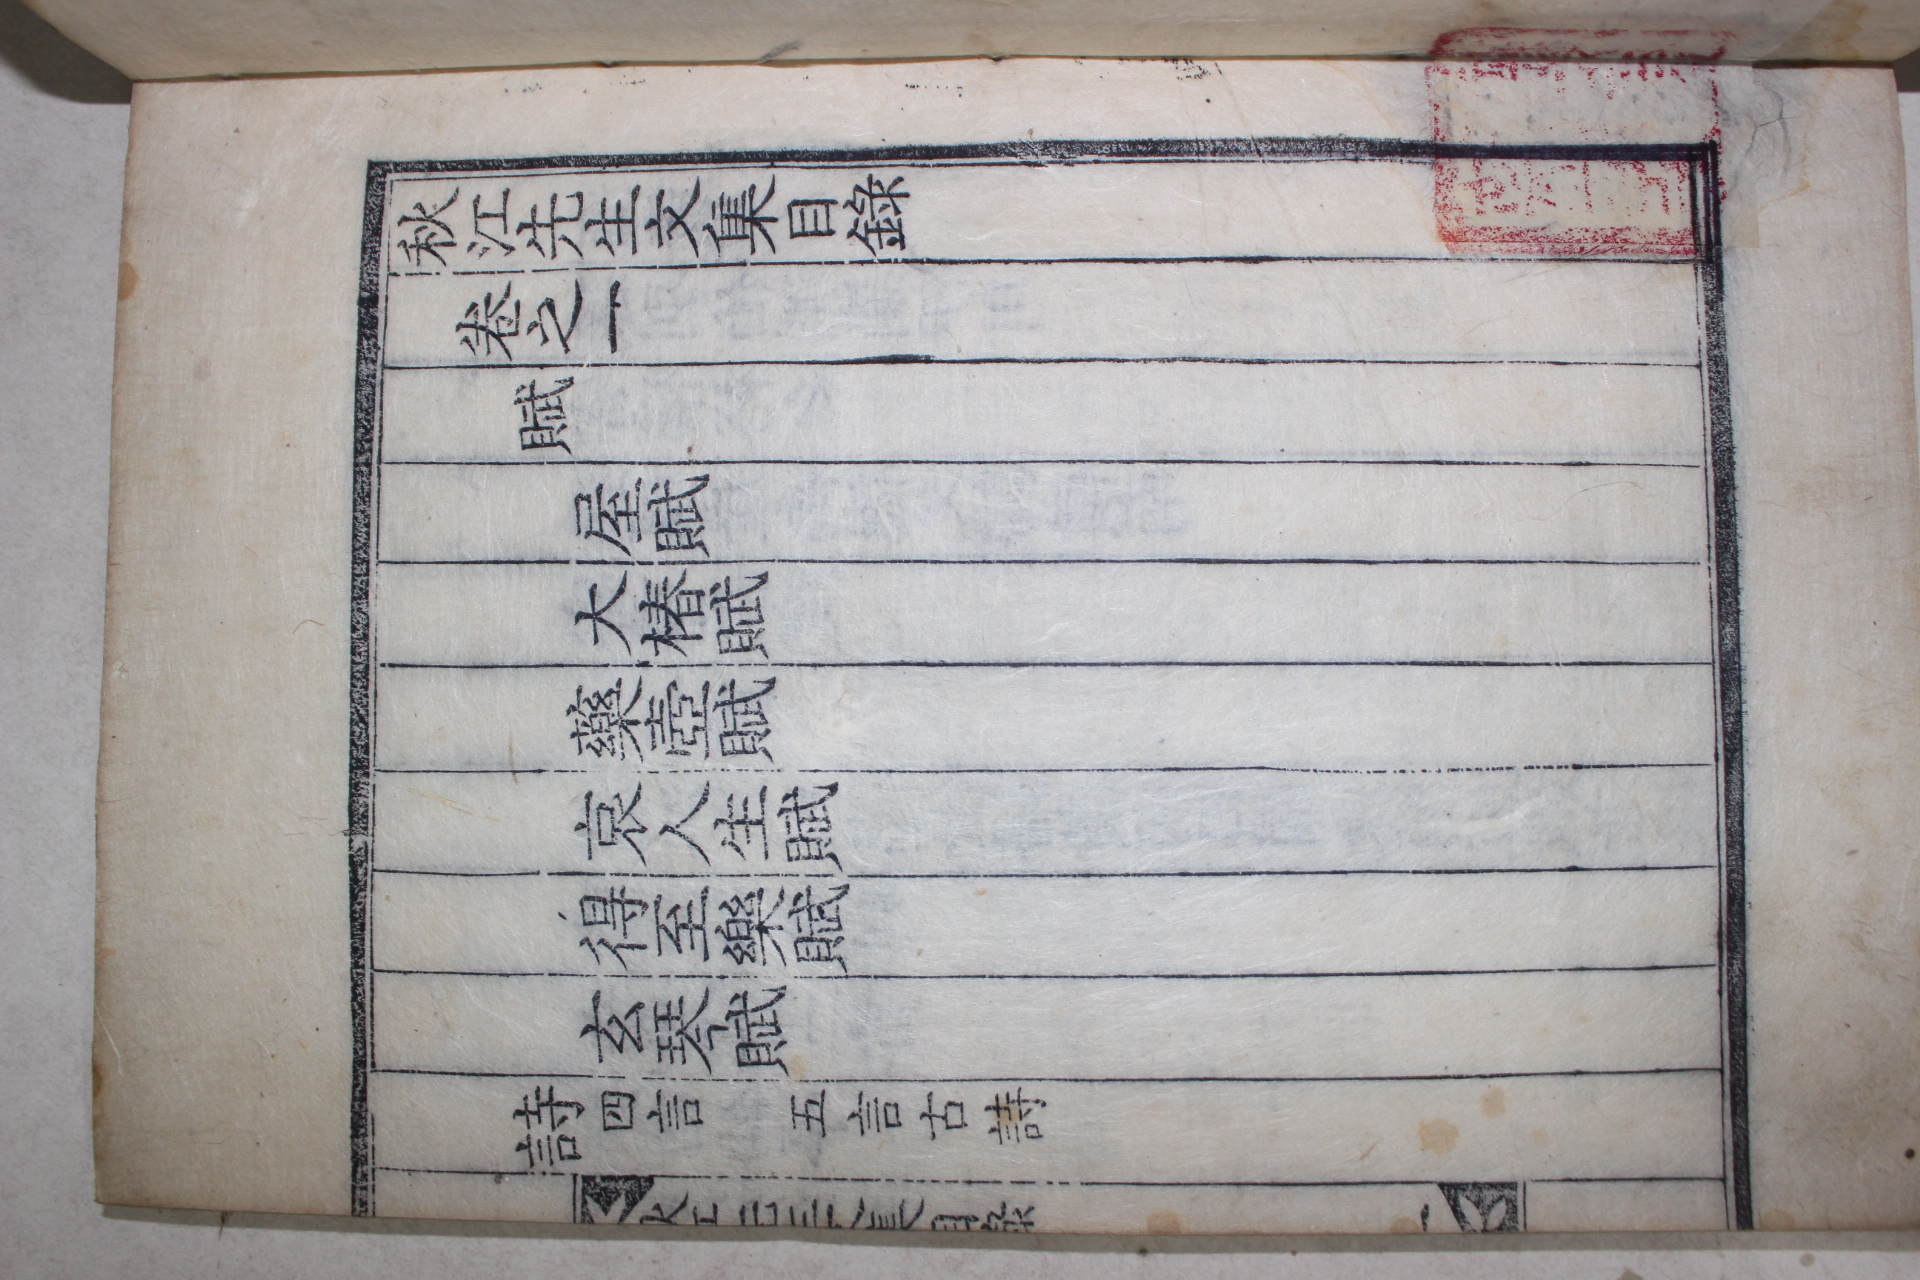 秋江先生文集目錄
卷之一
賦
屋賦
大椿賦
藥壺賦
哀人生賦
得至樂賦
玄琴賦
詩四言 五言古詩
秋江先生文集目錄
一